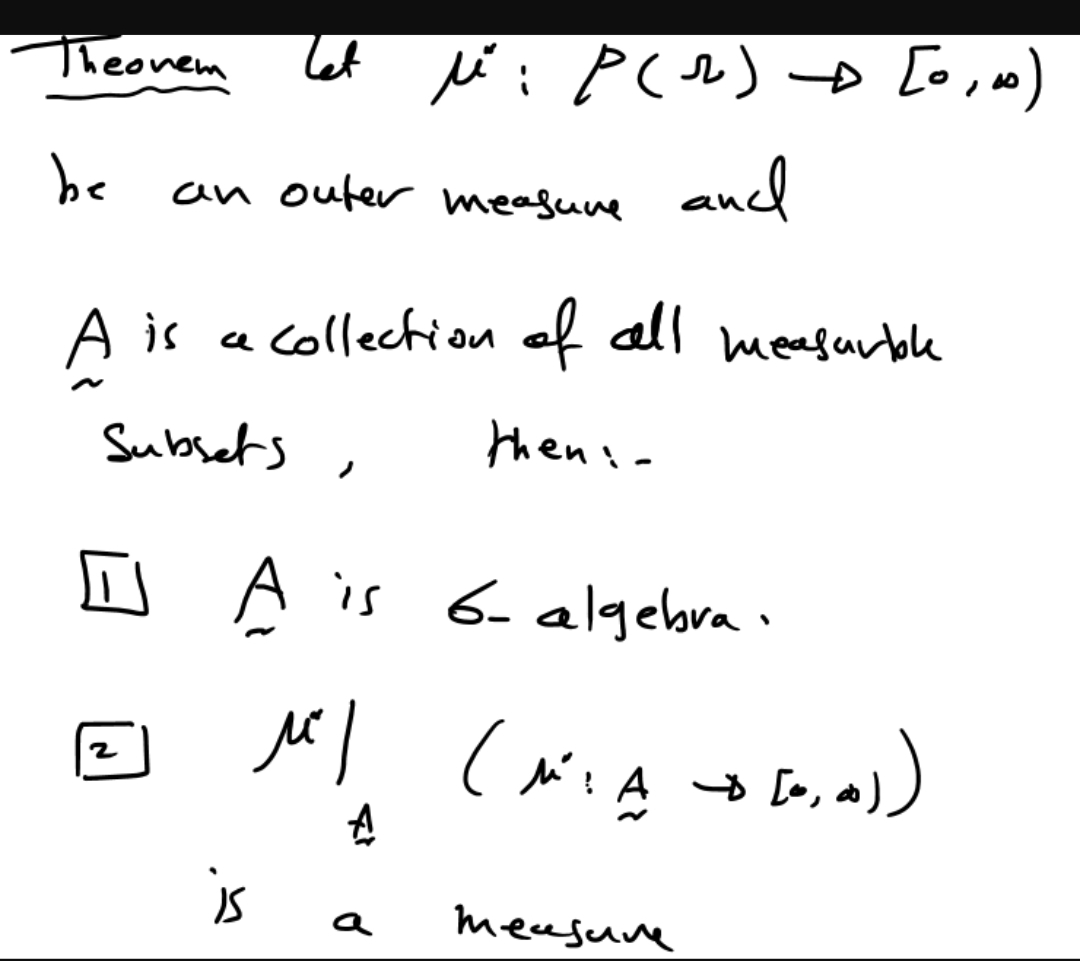 Theorem Let μ* : P(Ω) → [0,∞)
be an outer measure and
A is a collection of all measurable
subsets, then:-
1 A is σ-algebra.
2 μ*|A (μ* : A → [0,∞))
is a measure